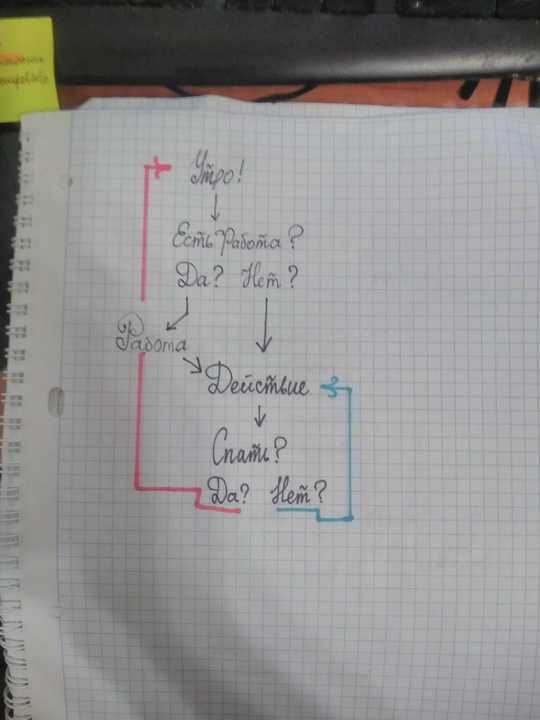 Утро!
Есть Работа?
Да? Нет?
Работа
Действие
Спать?
Да? Нет?